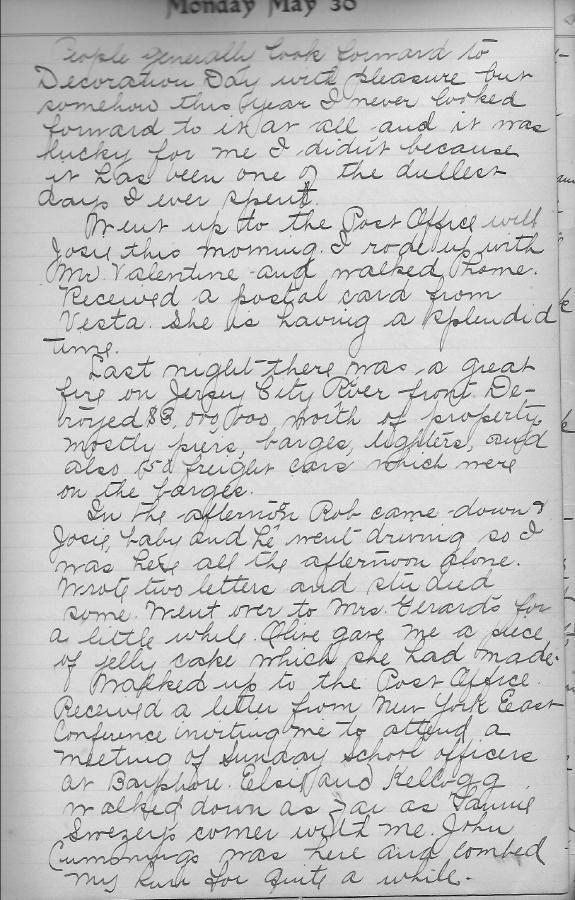 Monday May 30
People generally look forward to
Decoration Day with pleasure but
somehow this year I never looked
forward to it at all and it was
lucky for me I didn't because
it has been one of the dullest
days I ever spent.
Went up to the Post Office with
Josie this morning. I rode up with
Mr. Valentine and walked home.
Received a postal card from
Vesta. She is having a splendid
time.
Last night there was a great
fire on Jersey City River front. De-
troyed $3,000,000 worth of property,
mostly piers, barges, lighters, and
also 150 freight cars which were
on the barges.
In the afternoon Rob came down &
Josie, baby and he went driving so I
was here all the afternoon alone.
Wrote two letters and studied
some. Went over to Mrs. Gerard's for
a little while. Olive gave me a piece
of jelly cake which she had made.
Walked up to the Post Office.
Received a letter from New York East
Conference inviting me to attend a
meeting of Sunday School officers
at Bayshore. Elsie and Kellogg
walked down as far as Fannie
Swezey's corner with me. John
Cummings was here and combed
my hair for quite a while.